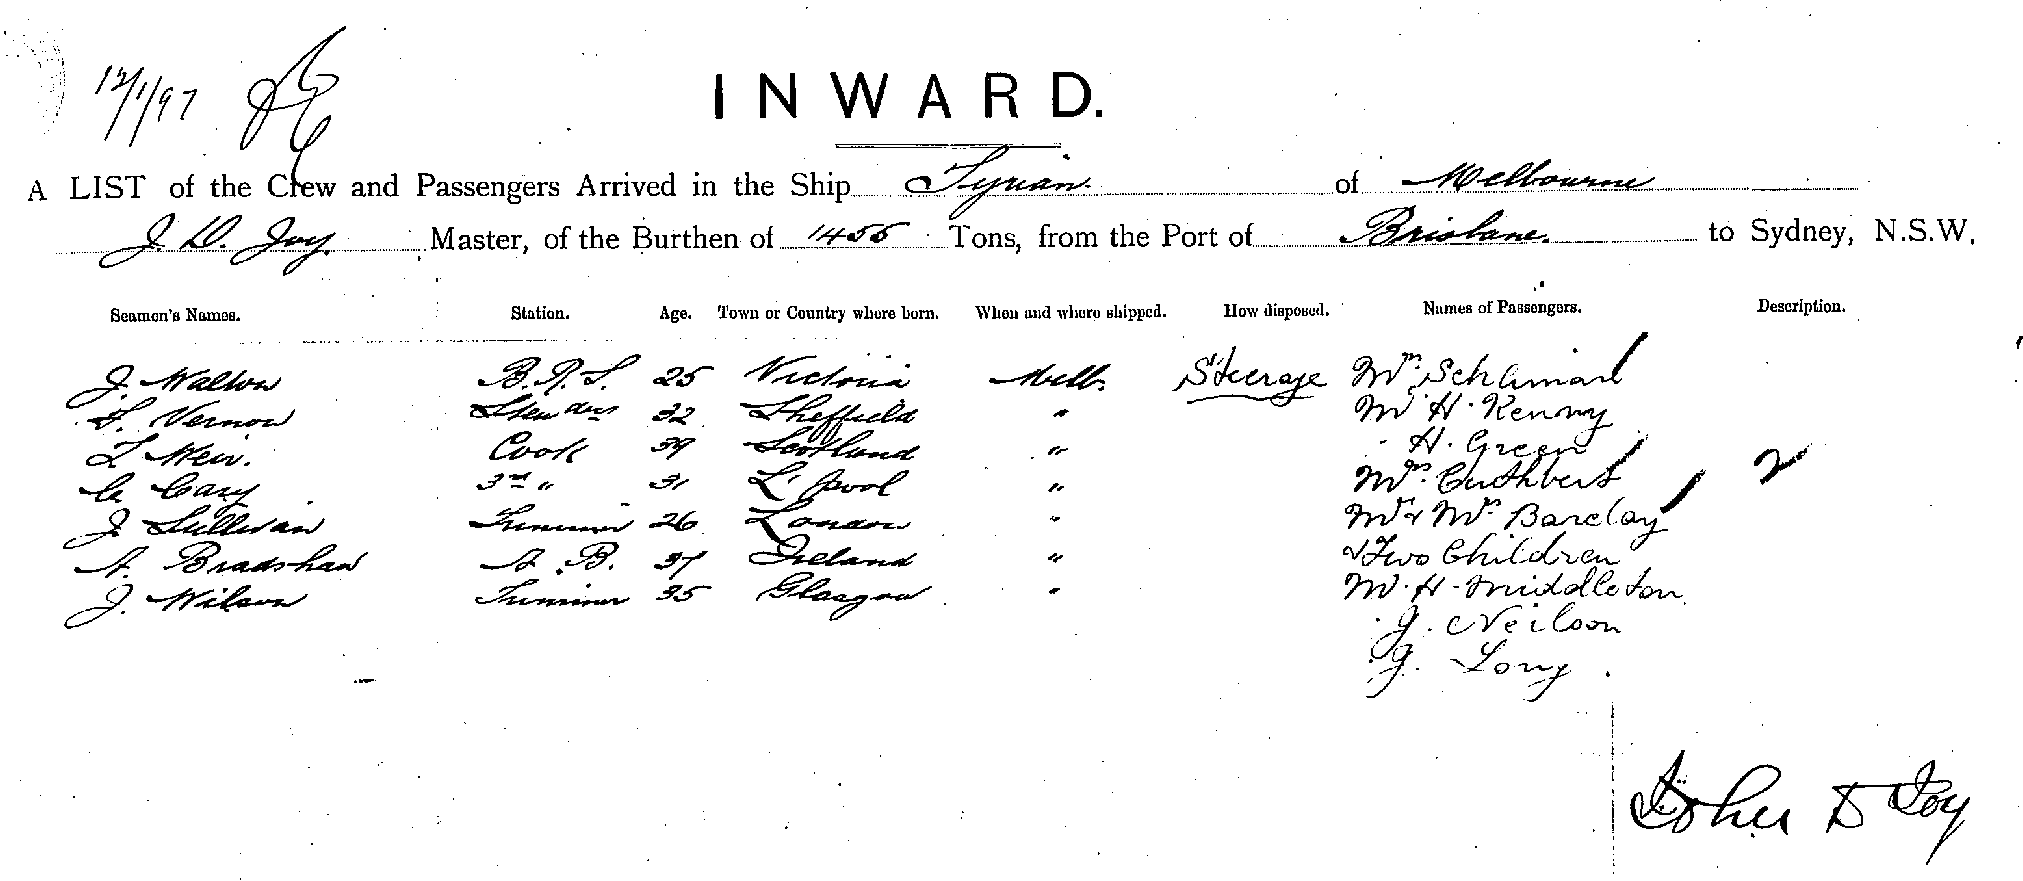 12/1/97
INWARD.
A LIST of the Crew and Passengers Arrived in the Ship Tyrian of Melbourne
J. D. Joy Master, of the Burthen of 1455 Tons, from the Port of Brisbane. to Sydney, N.S.W.
Seamen's Names. Station. Age. Town or Country where born. When and where shipped. How disposed. Names of Passengers. Description.
J. Walton B.R.S. 25 Victoria Melb. Steerage Mrs
S. Vernon 32 Sheffield " Mr H. Kenny
Weir. Cook 39 Scotland " H. Green
C. Cary 3rd " 31 L'pool " Mrs. Cuthbert 2
J. Sullivan Trimmer 26 London " Mr & Mrs Barclay
A. Bradshaw A. B. 37 Ireland " & Two Children
J. Wilson Trimmer 35 Glasgow " Mr. H. Middleton
J. Neilson
J. Long
John D Joy